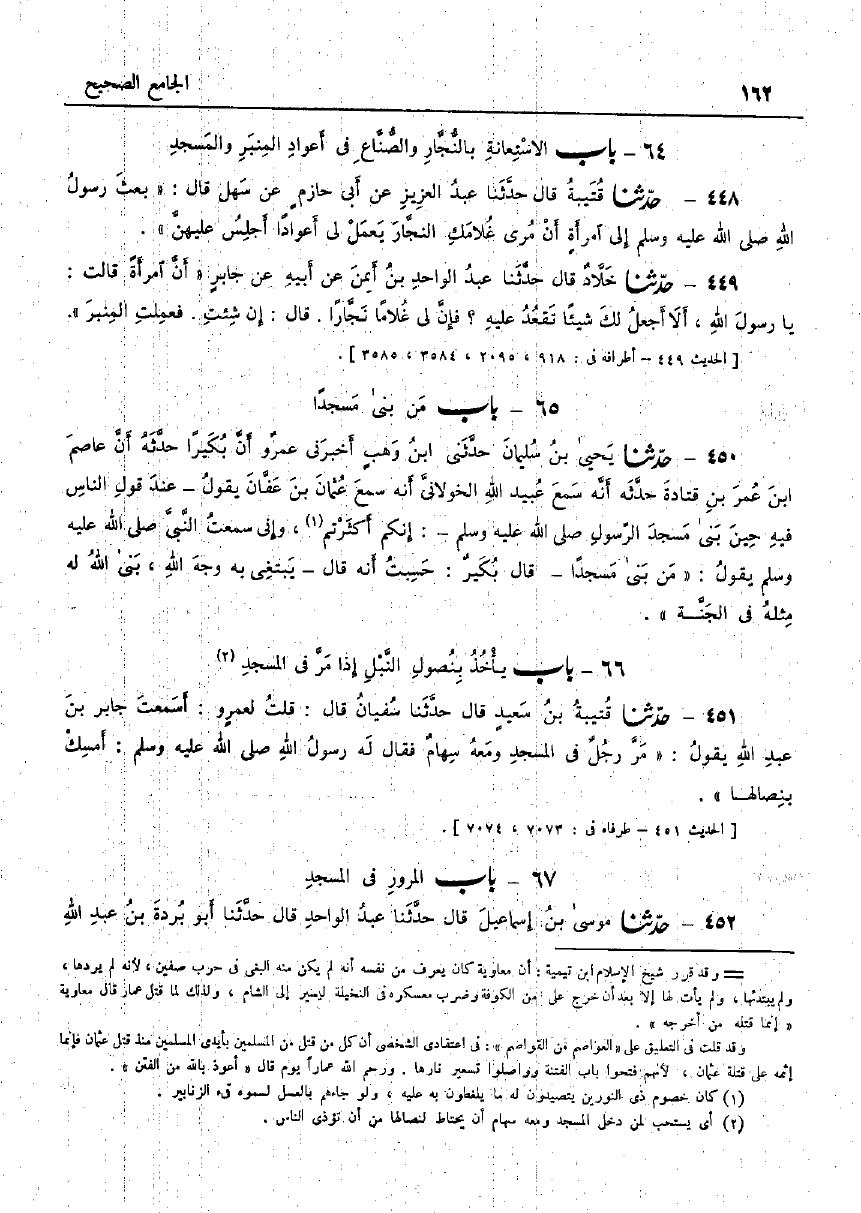 ١٦٢
الجامع الصحيح
٦٤ ــ باب الاسْتِعانةِ بالنُّجَّارِ والصُّنَّاعِ فى أعوادِ المِنبَرِ والمَسجدِ
٤٤٨ ــ حدّثنا قُتَيبةُ قال حدَّثَنا عبدُ العزيزِ عن أبى حازمٍ عن سَهلٍ قال : « بعثَ رسولُ
اللهِ صلى الله عليه وسلم إلى آمرأةٍ أَنْ مُرى غُلامَكِ النجَّارَ يَعمَلْ لى أعوادًا أجلِسُ عليهنَّ » .
٤٤٩ ــ حدّثنا خَلَّادٌ قال حدَّثَنا عبد الواحدِ بنُ أيمنَ عن أبيهِ عن جابرٍ « أنَّ آمرأةً قالت :
يا رسولَ اللهِ ، ألَا أجعلُ لكَ شيئًا تَقعُدُ عليهِ ؟ فإنَّ لى غُلامًا نَجَّارًا . قال : إن شِئتِ . فعمِلتِ المِنبرَ ».
[ الحديث ٤٤٩ ــ أطرافه فى : ٩١٨ ، ٢٠٩٥ ، ٣٥٨٤ ، ٣٥٨٥ ] .
٦٥ ــ باب مَن بَنىٰ مَسجدًا
٤٥٠ ــ حدّثنا يَحيىٰ بنُ سُليمانَ حدَّثَنى ابنُ وَهبٍ أخبرَنى عمرٌو أنَّ بُكَيرًا حدَّثَهُ أنَّ عاصمَ
ابنَ عُمرَ بنِ قتادةَ حدَّثه أنَّه سَمعَ عُبيد اللهِ الخولانىَّ أنه سمعَ عُثمانَ بنَ عَفَّانَ يقولُ ــ عندَ قولِ الناسِ
فيهِ حِينَ بَنىٰ مَسجدَ الرّسولِ صلى الله عليه وسلم ــ : إنكم أكثَرْتم(١) ، وإنى سمعتُ النَّبىَّ صلى الله عليه
وسلم يقولُ : « مَن بَنىٰ مَسجدًا ــ قال بُكَيرٌ : حَسِبتُ أنه قال ــ يَبتغِى به وجهَ اللهِ ، بَنىٰ اللهُ له
مِثلهُ فى الجَنَّــة » .
٦٦ ــ باب يأْخُذُ بِنُصولِ النَّبْلِ إذا مَرَّ فى المسجدِ (٢)
٤٥١ ــ حدّثنا قُتيبةُ بنُ سَعيدٍ قال حدَّثَنا سُفيانُ قال : قلتُ لعمرٍو : أَسَمعتَ جابر بنَ
عبدِ اللهِ يقولُ : « مَرَّ رجُلٌ فى المسجدِ ومَعهُ سِهامٌ فقال لَه رسولُ اللهِ صلى الله عليه وسلم : أَمسِكْ
بنِصالهــا » .
[ الحديث ٤٥١ ــ طرفاه فى : ٧٠٧٣ ، ٧٠٧٤ ] .
٦٧ ــ باب المرورِ فى المسجدِ
٤٥٢ ــ حدّثنا موسىٰ بنُ إسماعيلَ قال حدَّثَنا عبدُ الواحدِ قال حدَّثَنا أبو بُردةَ بنُ عبدِ اللهِ
== وقد قرر شيخ الإسلام ابن تيمية : أن معاوية كان يعرف من نفسه أنه لم يكن منه البغى فى حرب صفين ، لأنه لم يردها ،
ولم يبتدئها ، ولم يأت لها إلا بعد أن خرج على من الكوفة وضرب معسكره فى النخيلة ليسير إلى الشام ، ولذلك لما قتل عمار قال معاوية
« إنما قتله من أخرجه » .
وقد قلت فى التعليق على « العواصم من القواصم » : فى اعتقادى الشخصى أن كل من قتل من المسلمين بأيدى المسلمين منذ قتل عثمان فإنما
إثمه على قتلة عثمان ، لأنهم فتحوا باب الفتنة وواصلوا تسعير نارها . ورحم الله عماراً يوم قال « أعوذ بالله من الفتن » .
(١) كان خصوم ذى النورين يتصيدون له ما يلغطون به عليه ، ولو جاءهم بالعسل لسموه قىء الزنابير .
(٢) أى يستحب لمن دخل المسجد ومعه سهام أن يحتاط لنصالها من أن تؤذى الناس .